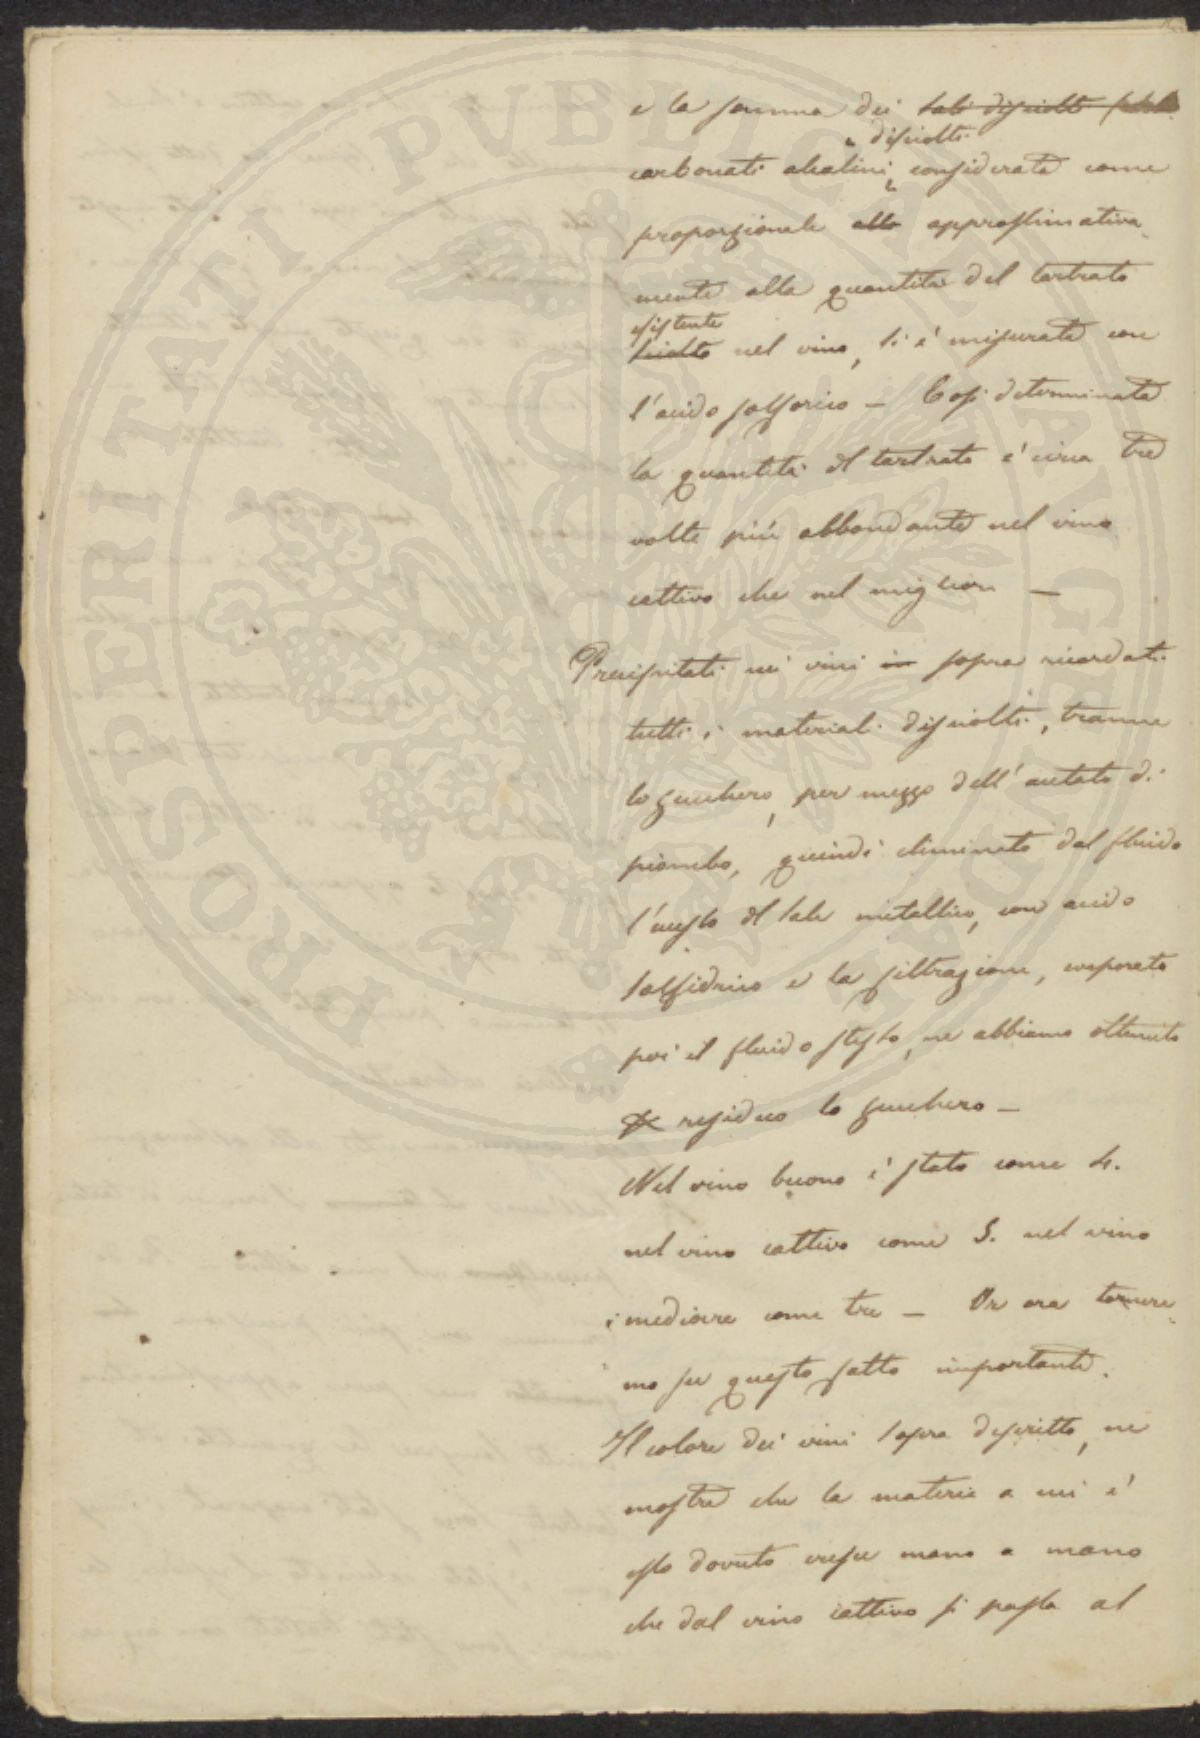 e la somma dei sali disciolti
disciolti
carbonati alcalini, considerata come
proporzionale allo approssimativa-
mente alla quantità del tartrato
esistente
sciolto nel vino, si è misurata con
l'acido solforico — Così determinata
la quantità del tartrato è circa tre
volte più abbondante nel vino
cattivo che nel migliore —
Precipitati nei vini in sopra ricordati
tutti i materiali disciolti, tranne
lo zucchero, per mezzo dell'acetato di
piombo, quindi eliminato dal fluido
l'eccesso del sale metallico, con acido
solfidrico e la filtrazione, evaporato
poi il fluido stesso, ne abbiamo ottenuto
residuo lo zucchero —
Nel vino buono è stato come 4.
nel vino cattivo come 5. nel vino
mediocre come tre — Or ora tornere-
mo su questo fatto importante.
Il colore dei vini sopra descritto, ne
mostra che la materia a cui è
esso dovuto cresce mano a mano
che dal vino cattivo si passa al
PROSPERITATI PUBLICAE AUGENDAE